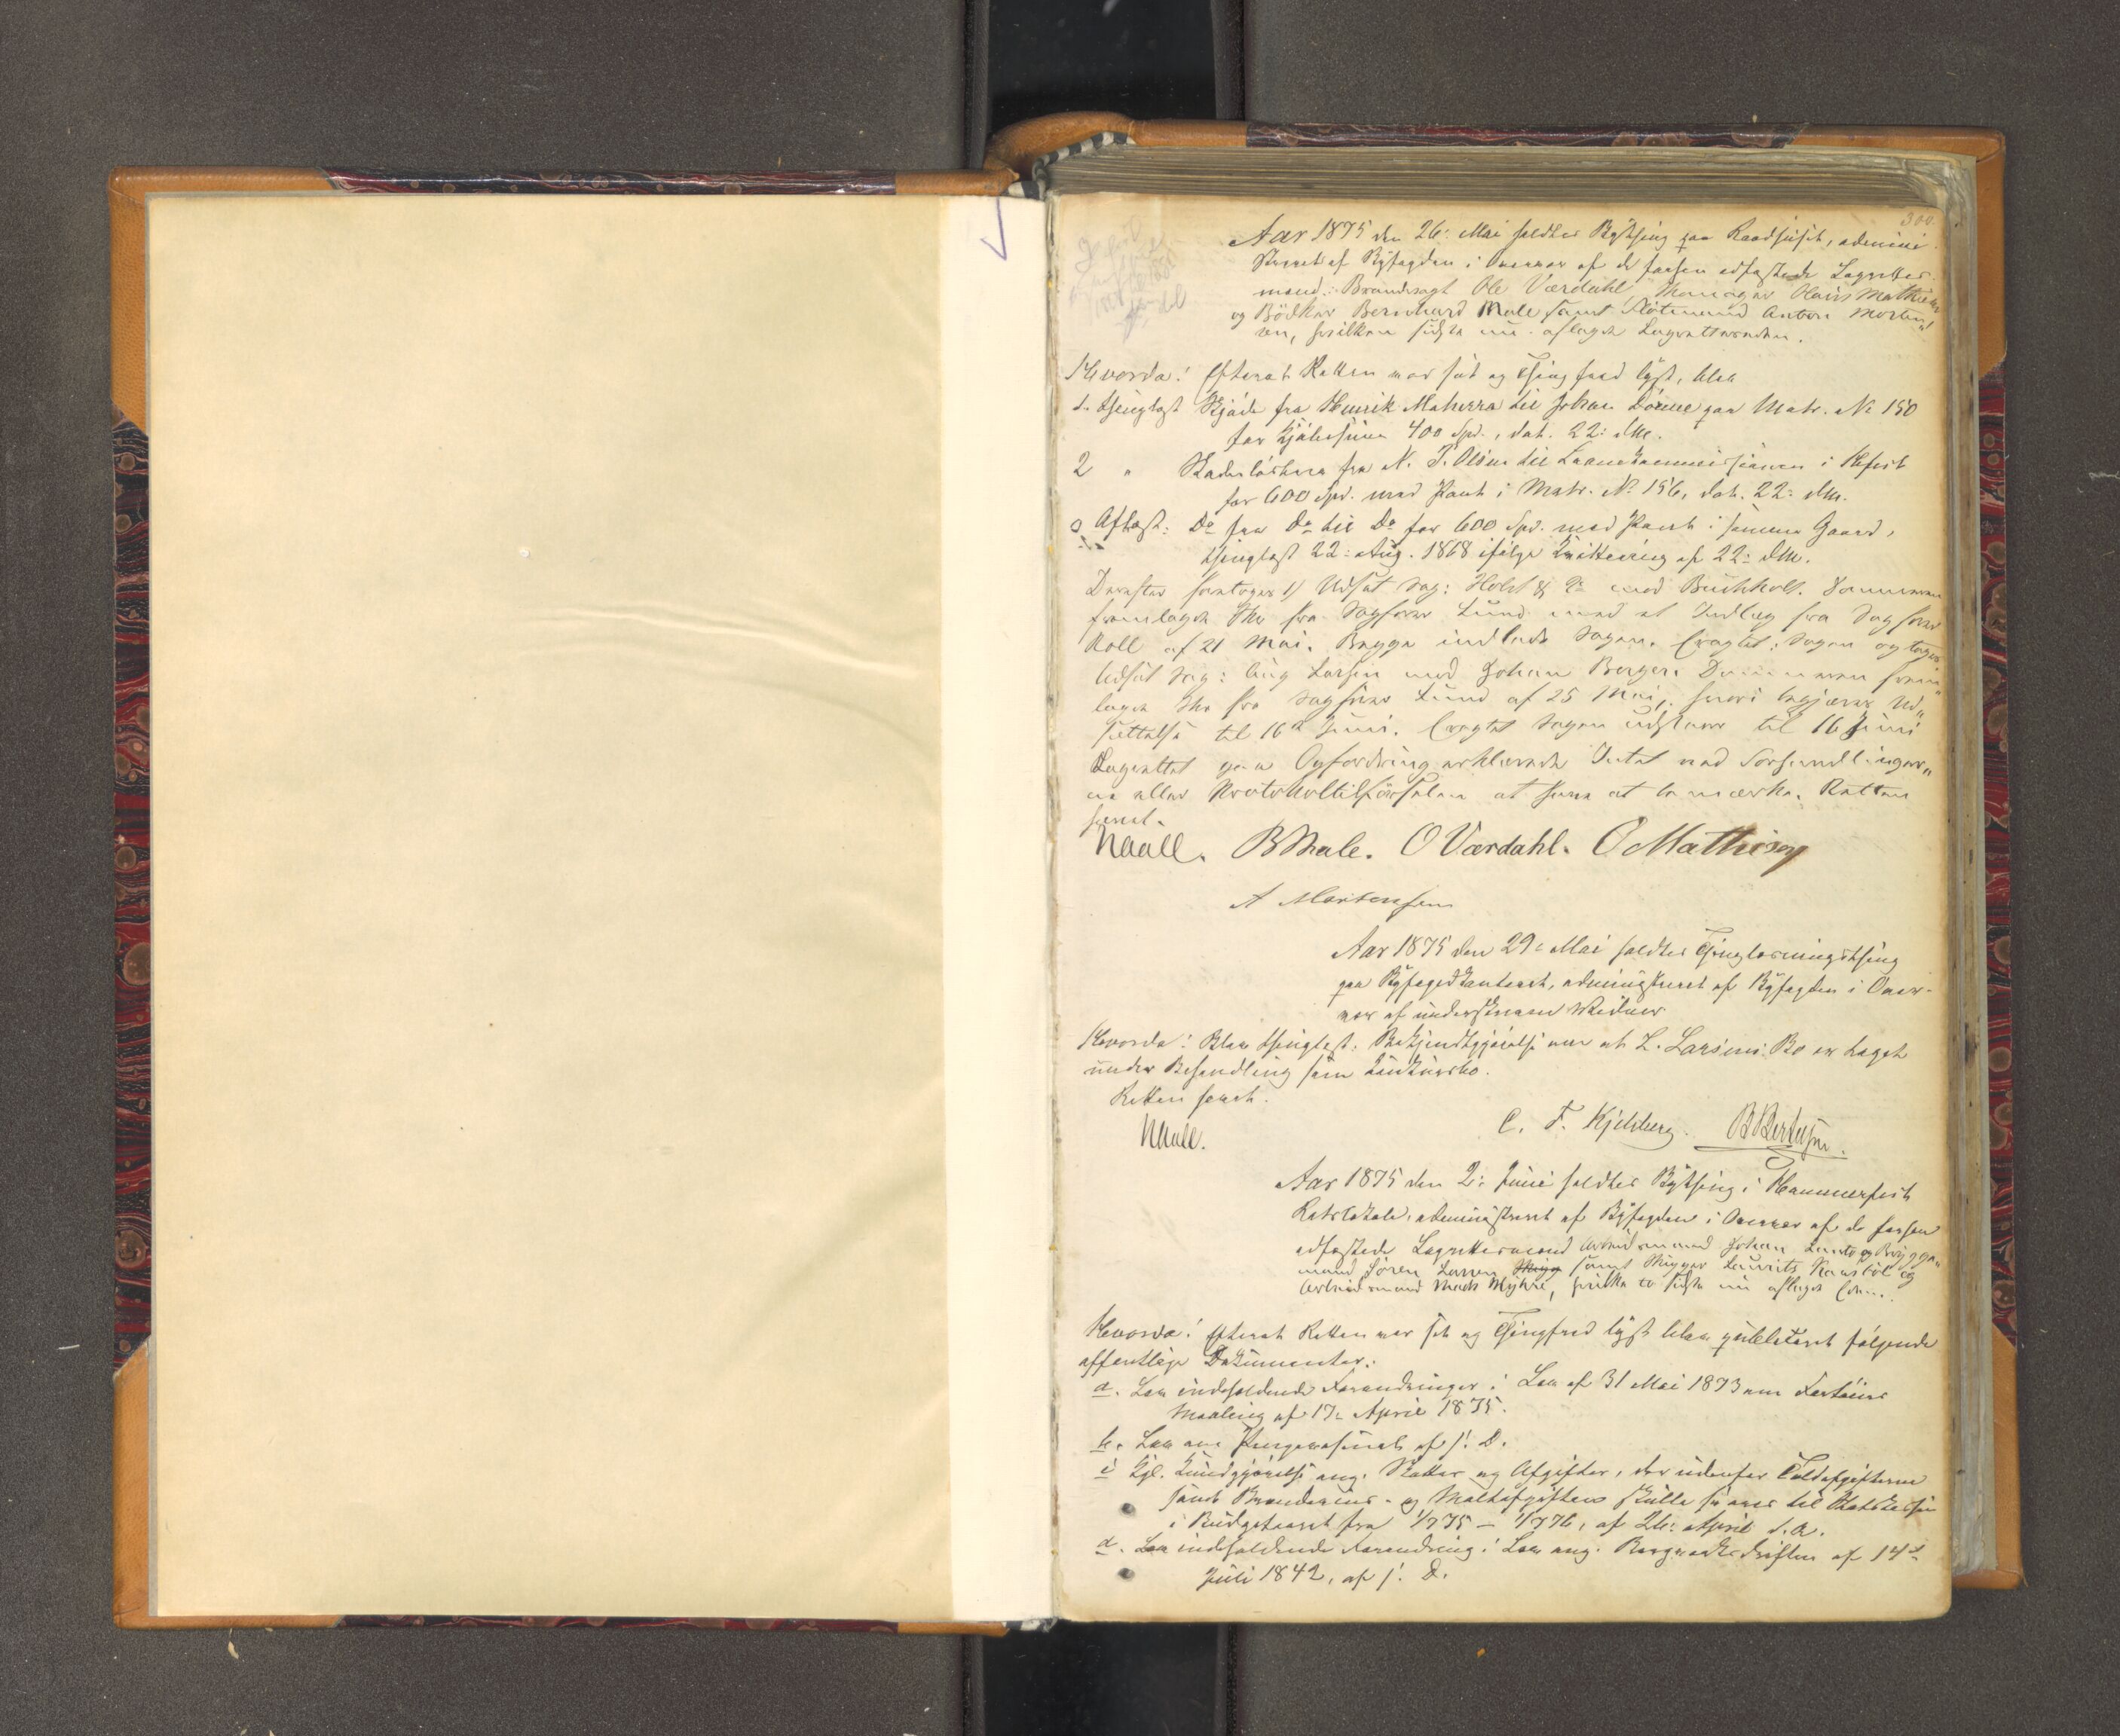 300.
Aar 1875 den 26: Mai holdtes Bything paa Raadhuset, admini-
streret af Byfogden i Overvær af de forhen edfæstede Lagrettes-
mænd: Brandvagt Ole Værdahl, Olaus Mathisen
og Bödker Bernhard Male samt Flötmand Anton Morten„
sen, hvilken sidste nu aflagde Lagrettereden.
Hvorda: Efterat Retten var sat og Thingfred lyst, blev
1. thinglæst Skjöde fra Henrik Maherra til Johan paa Matr. No 150
for Kjöbesum 400 Spd., dat. 22: dM.
2 " Skadeslösbrev fra N. P. Olsen til Laanekommissionen i Hfest
for 600 Spd. med Pant i Matr. No 156, dat. 22: dM.
3 Aflæst: Do fra Do til Do for 600 Spd. med Pant i samme Gaard,
thinglæst 22: Aug. 1868 ifölge Kvittering af 22: dM.
Derefter foretoges 1) Udsat Sag: Holst & Co mod Buchholt. Dommeren
fremlagde Skr fra Sagförer Lund med et Indlæg fra Sagförer
Roll af 21 Mai. Begge indlode Sagen. Eragtet: Sagen optages
Udsat Sag: Aug Larsen mod Johan Berger. Dommeren frem„
lagde Skr fra Sagförer Lund af 25 Mai, hvori begjæres Ud„
sættelse til 16de Juni. Eragtet Sagen udstaar til 16 Juni
Lagrettet paa Opfordring erklærede Intet ved Forhandlinger„
ne eller Protokoltilförselen at have at bemærke. Retten
hævet.
NAall. BMale. O Værdahl. O Mathisen
A Mortensen
Aar 1875 den 29: Mai holdtes Thinglæsningsthing
paa Byfogedkontoret, administreret af Byfogden i Over-
vær af underskrevne Vidner
Hvorda: Blev thinglæst: Bekjendtgjörelse om at L. Larsens Bo er taget
under Behandling som Konkursbo.
Retten hævet.
NAall. C. F. Kjelsberg. B Bertelsen.
Aar 1875 den 2: Juni holdtes Bything i Hammerfest
Retslokale, administreret af Byfogden i Overvær af de forhen
edfæstede Lagrettesmænd Arbeidsmand Johan og Brygge„
mand Sören Larsen samt Skipper Laurits og
Arbeidsmand Mads Myhre, hvilke to sidste nu aflagde Eden.
Hvorda: Efterat Retten var sat og Thingfred lyst blev publiceret fölgende
offentlige Dokumenter:
a. Lov indeholdende Forandringer i Lov af 31 Mai 1873 om Fartöiers
Maaling af 17: April 1875.
b. Lov om Pengevæsenet af s. D.
c Kgl. Kundgjörelse ang. Skatter og Afgifter, der udenfor Toldafgifterne
samt Brændeviins- og Maltafgiften skulle svares til Statskassen
i Budgetaaret fra 1/7 75 – 1/7 76, af 26: April d. A.
d. Lov indeholdende Forandring i Lov ang. Bergverksdriften af 14d
Juli 1842, af s. D.